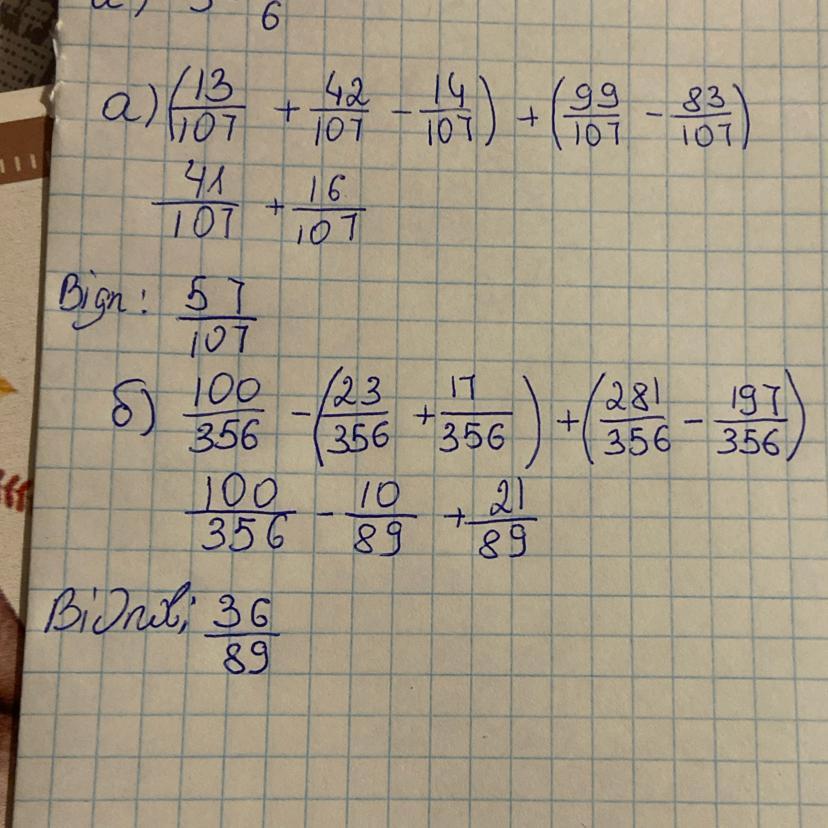 а) 5 6
а) (13/107 + 42/107 - 14/107) + (99/107 - 83/107)
41/107 + 16/107
Відп: 57/107
б) 100/356 - (23/356 + 17/356) + (281/356 - 197/356)
100/356 - 10/89 + 21/89
36/89